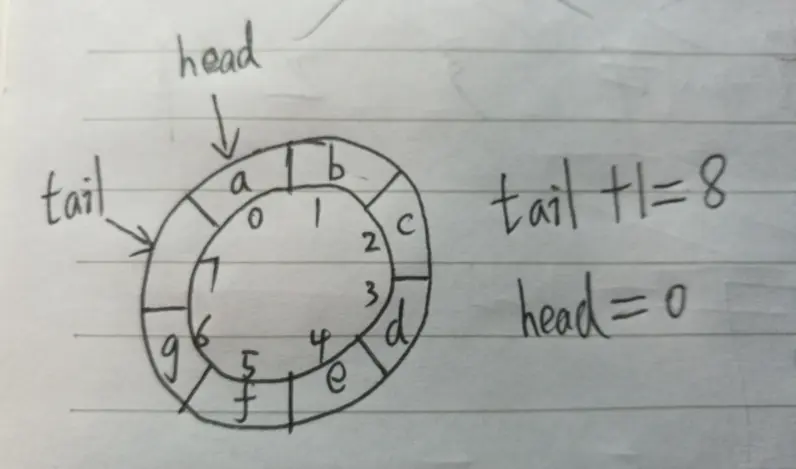 head
tail
a
b
c
d
e
f
g
0
1
2
3
4
5
6
7
tail +1=8
head=0